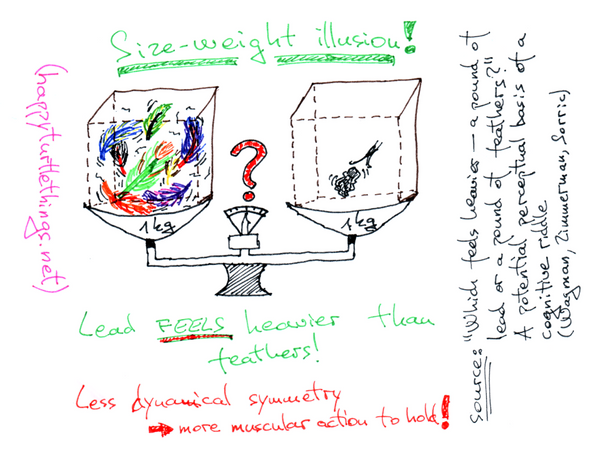 Size-weight illusion!
(happyturtlethings.net)
?
1 kg
1 kg
Lead FEELS heavier than
feathers!
Less dynamical symmetry
→ more muscular action to hold!
source: "Which feels heavier – a pound of
lead or a pound of feathers?"
A potential perceptual basis of a
cognitive riddle
(Wagman, Zimmerman, Sorric)